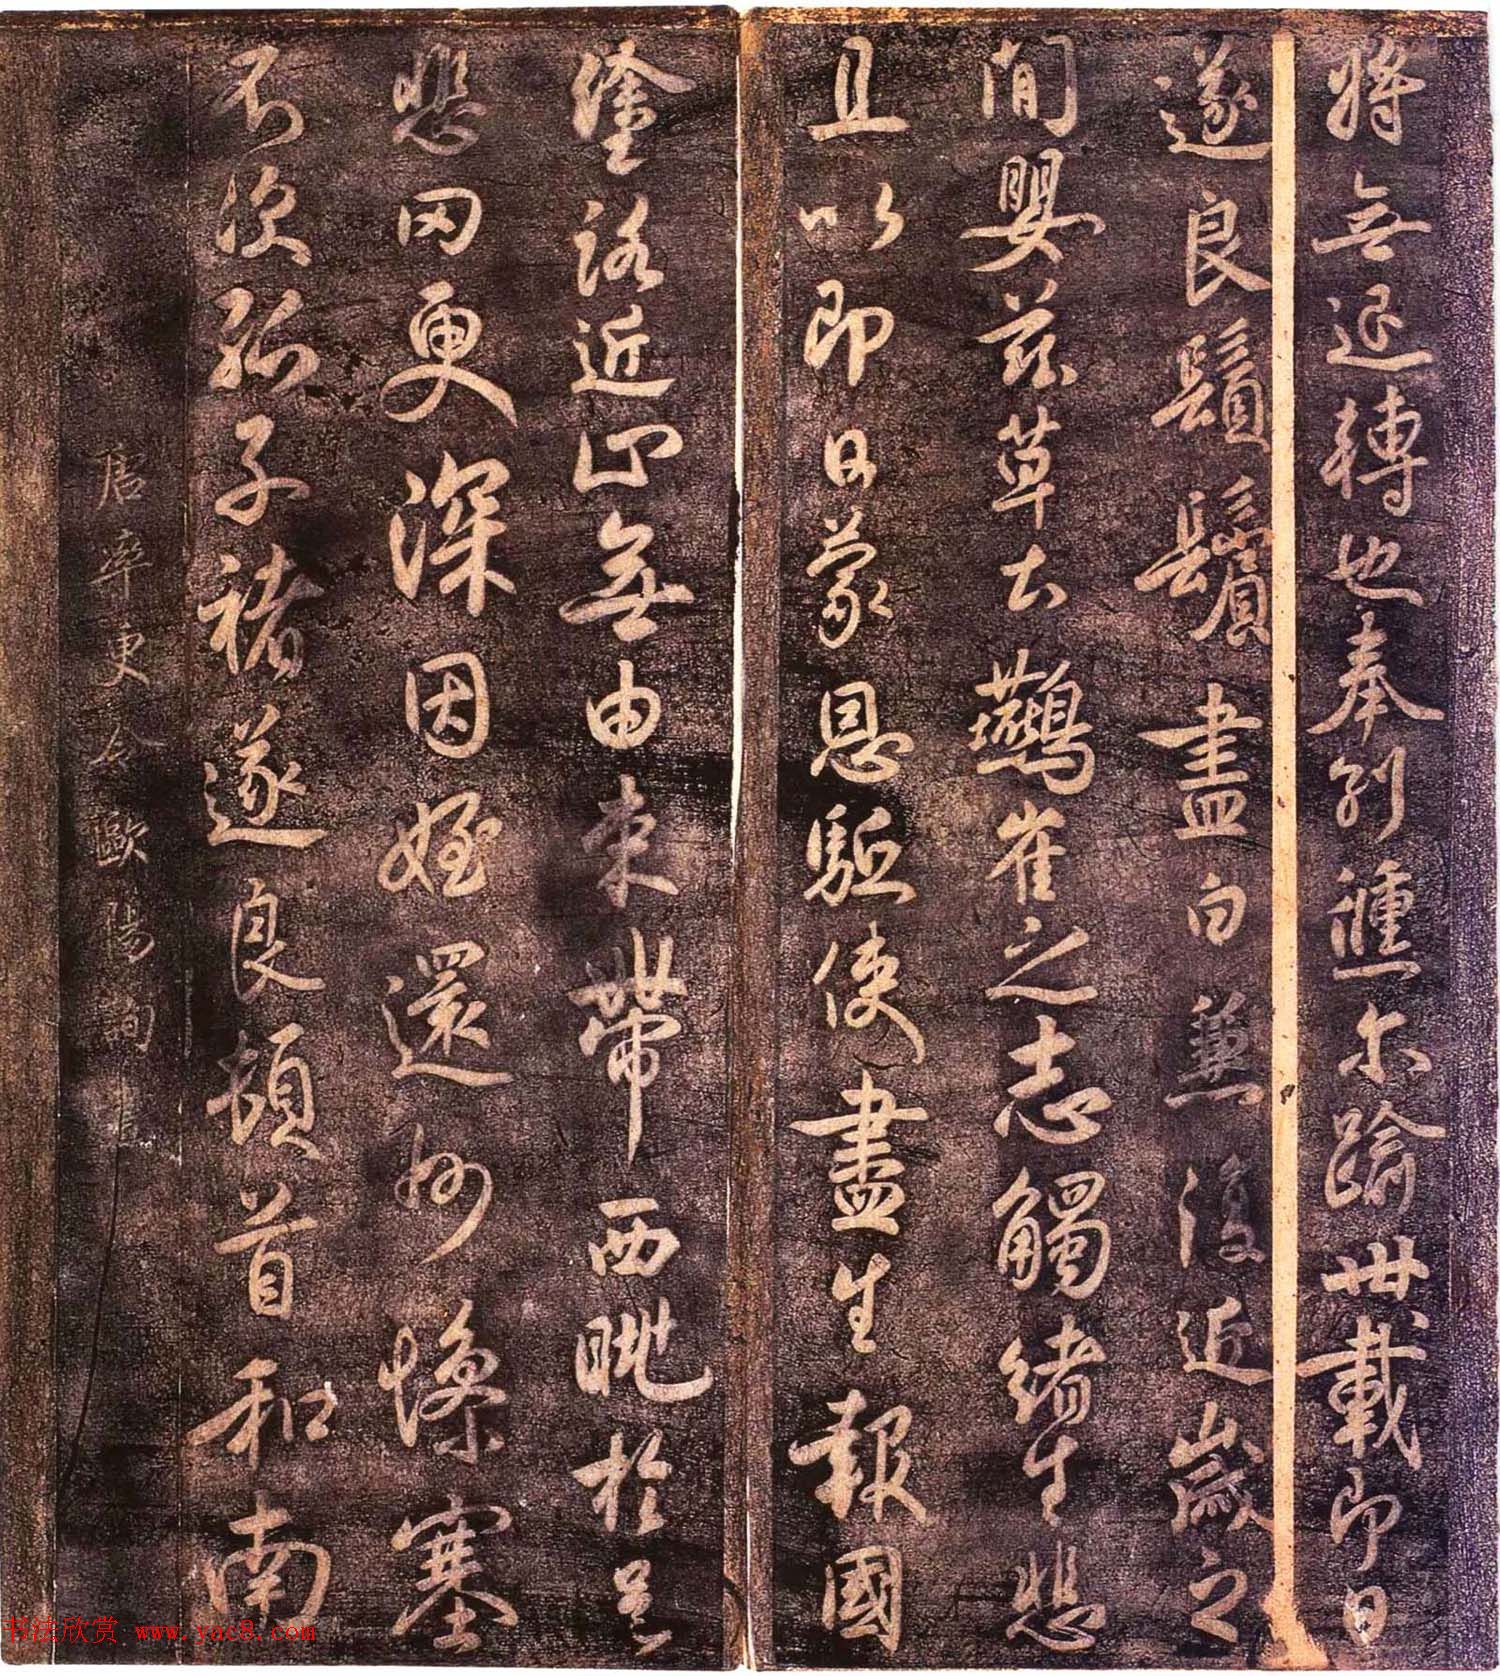 將無退轉也奉別倏爾踰卅載即日
遂良鬚鬢盡白兼復近歲之
間嬰茲草土鷰雀之志觸緒生悲
且以即日蒙恩驅使盡生報國
塗路近止無由束帶西眺於邑
悲罔更深因姪還州慘塞
不次孤子褚遂良頓首和南
唐率更令歐陽詢書
书法欣赏 www.yac8.com